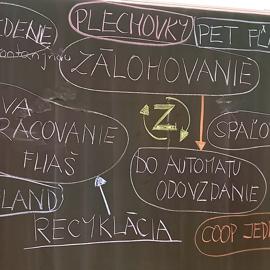 PLECHOVKY
PET FĽ
ZÁLOHOVANIE
VA
RACOVANIE
FLIAŠ
Z
SPAĽO
DO AUTOMATU
ODOVZDANIE
LAND
RECYKLÁCIA
COOP JED